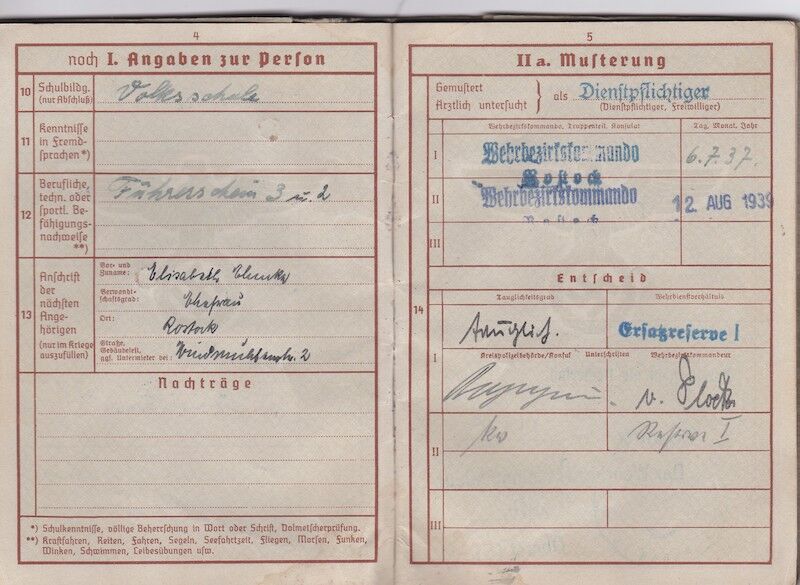 4
noch I. Angaben zur Person
10
Schulbildg.
(nur Abschluß)
Volksschule
11
Kenntnisse
in Fremd-
sprachen*)
12
Berufliche,
techn. oder
sportl. Be-
fähigungs-
nachweise
**)
Führerschein 3 u. 2
13
Anschrift
der
nächsten
Ange-
hörigen
(nur im Kriege
auszufüllen)
Vor- und
Zuname:
Elisabeth
Verwandt-
schaftsgrad:
Ehefrau
Ort:
Rostock
Straße,
Gebäudeteil,
ggf. Untermieter bei:
Windmühlenstr. 2
Nachträge
*) Schulkenntnisse, völlige Beherrschung in Wort oder Schrift, Dolmetscherprüfung.
**) Kraftfahren, Reiten, Fahren, Segeln, Seefahrtzeit, Fliegen, Morsen, Funken,
Winken, Schwimmen, Leibesübungen usw.
5
II a. Musterung
Gemustert
Ärztlich untersucht
als Dienstpflichtiger
(Dienstpflichtiger, Freiwilliger)
Wehrbezirkskommando, Truppenteil, Konsulat
Tag, Monat, Jahr
I
Wehrbezirkskommando
Rostock
6.7.37.
II
Wehrbezirkskommando
Rostock
12. AUG 1939
III
Entscheid
14
Tauglichkeitsgrad
Wehrdienstverhältnis
I
tauglich.
Ersatzreserve I
Kreispolizeibehörde/Konsul
Unterschriften
Wehrbezirkskommandeur
v.
II
kv
Reserve I
III